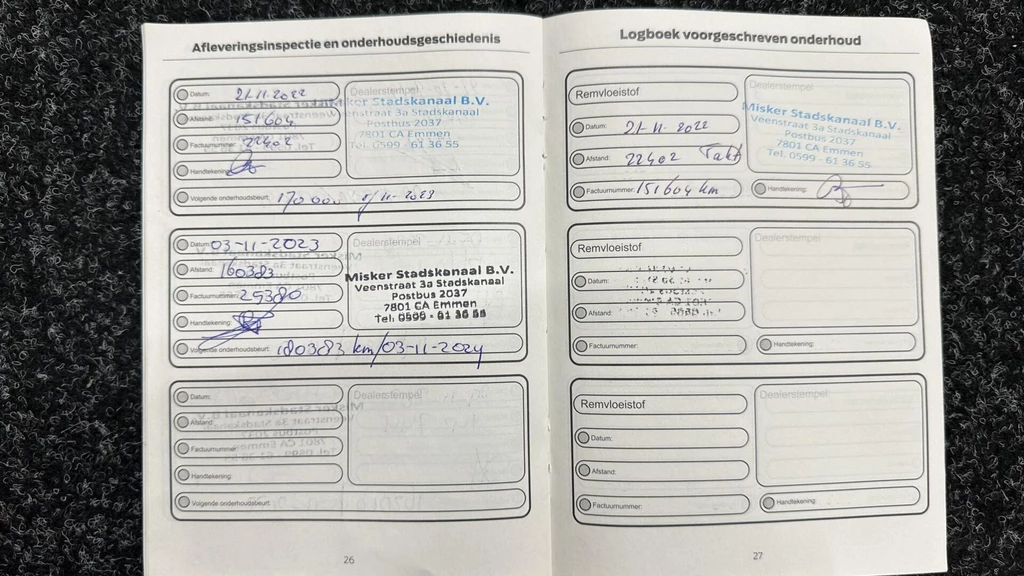 Afleveringsinspectie en onderhoudsgeschiedenis
Datum: 21-11-2022
Afstand: 151604
Factuurnummer: 22402
Handtekening:
Volgende onderhoudsbeurt: 170000 11-2023
Dealerstempel
Misker Stadskanaal B.V.
Veenstraat 3a Stadskanaal
Postbus 2037
7801 CA Emmen
Tel. 0599 - 61 36 55
Datum: 03-11-2023
Afstand: 160383
Factuurnummer: 29380
Handtekening:
Volgende onderhoudsbeurt: 180383 km/03-11-2024
Dealerstempel
Misker Stadskanaal B.V.
Veenstraat 3a Stadskanaal
Postbus 2037
7801 CA Emmen
Tel. 0599 - 61 36 55
Datum:
Afstand:
Factuurnummer:
Handtekening:
Volgende onderhoudsbeurt:
Dealerstempel
26
Logboek voorgeschreven onderhoud
Remvloeistof
Datum: 21-11-2022
Afstand: 22402
Factuurnummer: 151604 km
Dealerstempel
Misker Stadskanaal B.V.
Veenstraat 3a Stadskanaal
Postbus 2037
7801 CA Emmen
Tel. 0599 - 61 36 55
Handtekening:
Remvloeistof
Datum:
Afstand:
Factuurnummer:
Dealerstempel
Handtekening:
Remvloeistof
Datum:
Afstand:
Factuurnummer:
Dealerstempel
Handtekening:
27